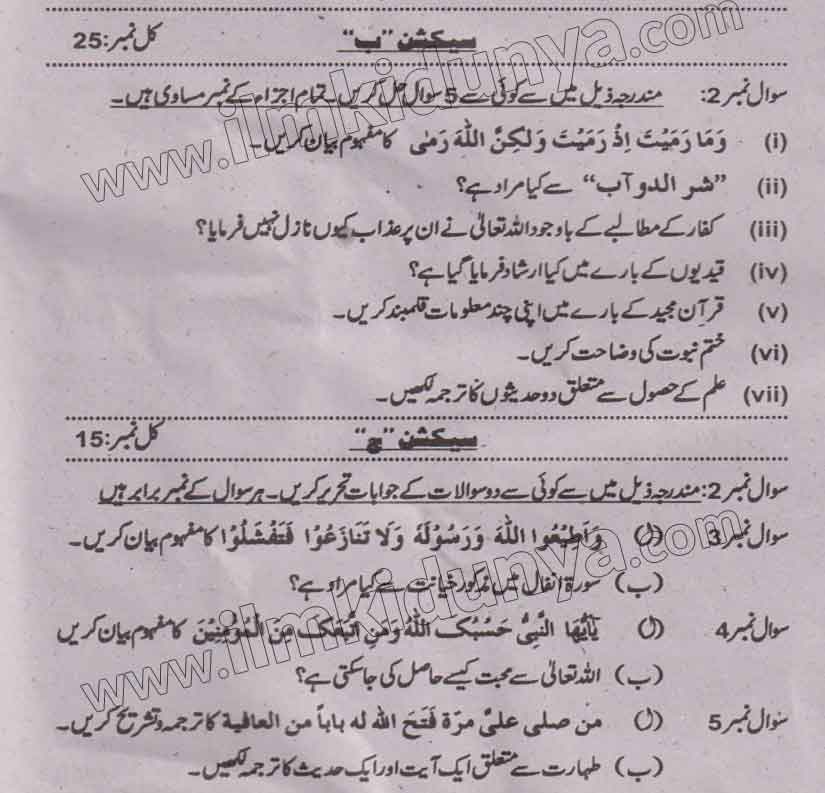 سیکشن "ب" کل نمبر:25
سوال نمبر 2: مندرجہ ذیل میں سے کوئی سے 5 سوال حل کریں۔ تمام اجزاء کے نمبر مساوی ہیں۔
(i) وَمَا رَمَيْتَ اِذْ رَمَيْتَ وَلٰكِنَّ اللّٰهَ رَمٰى کا مفہوم بیان کریں۔
(ii) "شر الدوآب" سے کیا مراد ہے؟
(iii) کفار کے مطالبے کے باوجود اللہ تعالیٰ نے ان پر عذاب کیوں نازل نہیں فرمایا؟
(iv) قیدیوں کے بارے میں کیا ارشاد فرمایا گیا ہے؟
(v) قرآن مجید کے بارے میں اپنی چند معلومات قلمبند کریں۔
(vi) ختم نبوت کی وضاحت کریں۔
(vii) علم کے حصول سے متعلق دو حدیثوں کا ترجمہ لکھیں۔
سیکشن "ج" کل نمبر:15
سوال نمبر 2: مندرجہ ذیل میں سے کوئی سے دو سوالات کے جوابات تحریر کریں۔ ہر سوال کے نمبر برابر ہیں
سوال نمبر 3 (ال) وَاَطِيْعُوا اللّٰهَ وَرَسُوْلَهٗ وَلَا تَنَازَعُوْا فَتَفْشَلُوْا کا مفہوم بیان کریں۔
(ب) سورۃ انفال میں مذکور خیانت سے کیا مراد ہے؟
سوال نمبر 4 (ال) يٰٓاَيُّهَا النَّبِىُّ حَسْبُكَ اللّٰهُ وَمَنِ اتَّبَعَكَ مِنَ الْمُؤْمِنِيْنَ کا مفہوم بیان کریں
(ب) اللہ تعالیٰ سے محبت کیسے حاصل کی جاسکتی ہے؟
سوال نمبر 5 (ال) من صلى علیَّ مرّة فَتَحَ الله له باباً من العافية کا ترجمہ و تشریح کریں۔
(ب) طہارت سے متعلق ایک آیت اور ایک حدیث کا ترجمہ لکھیں۔
www.ilmkidunya.com
www.ilmkidunya.com